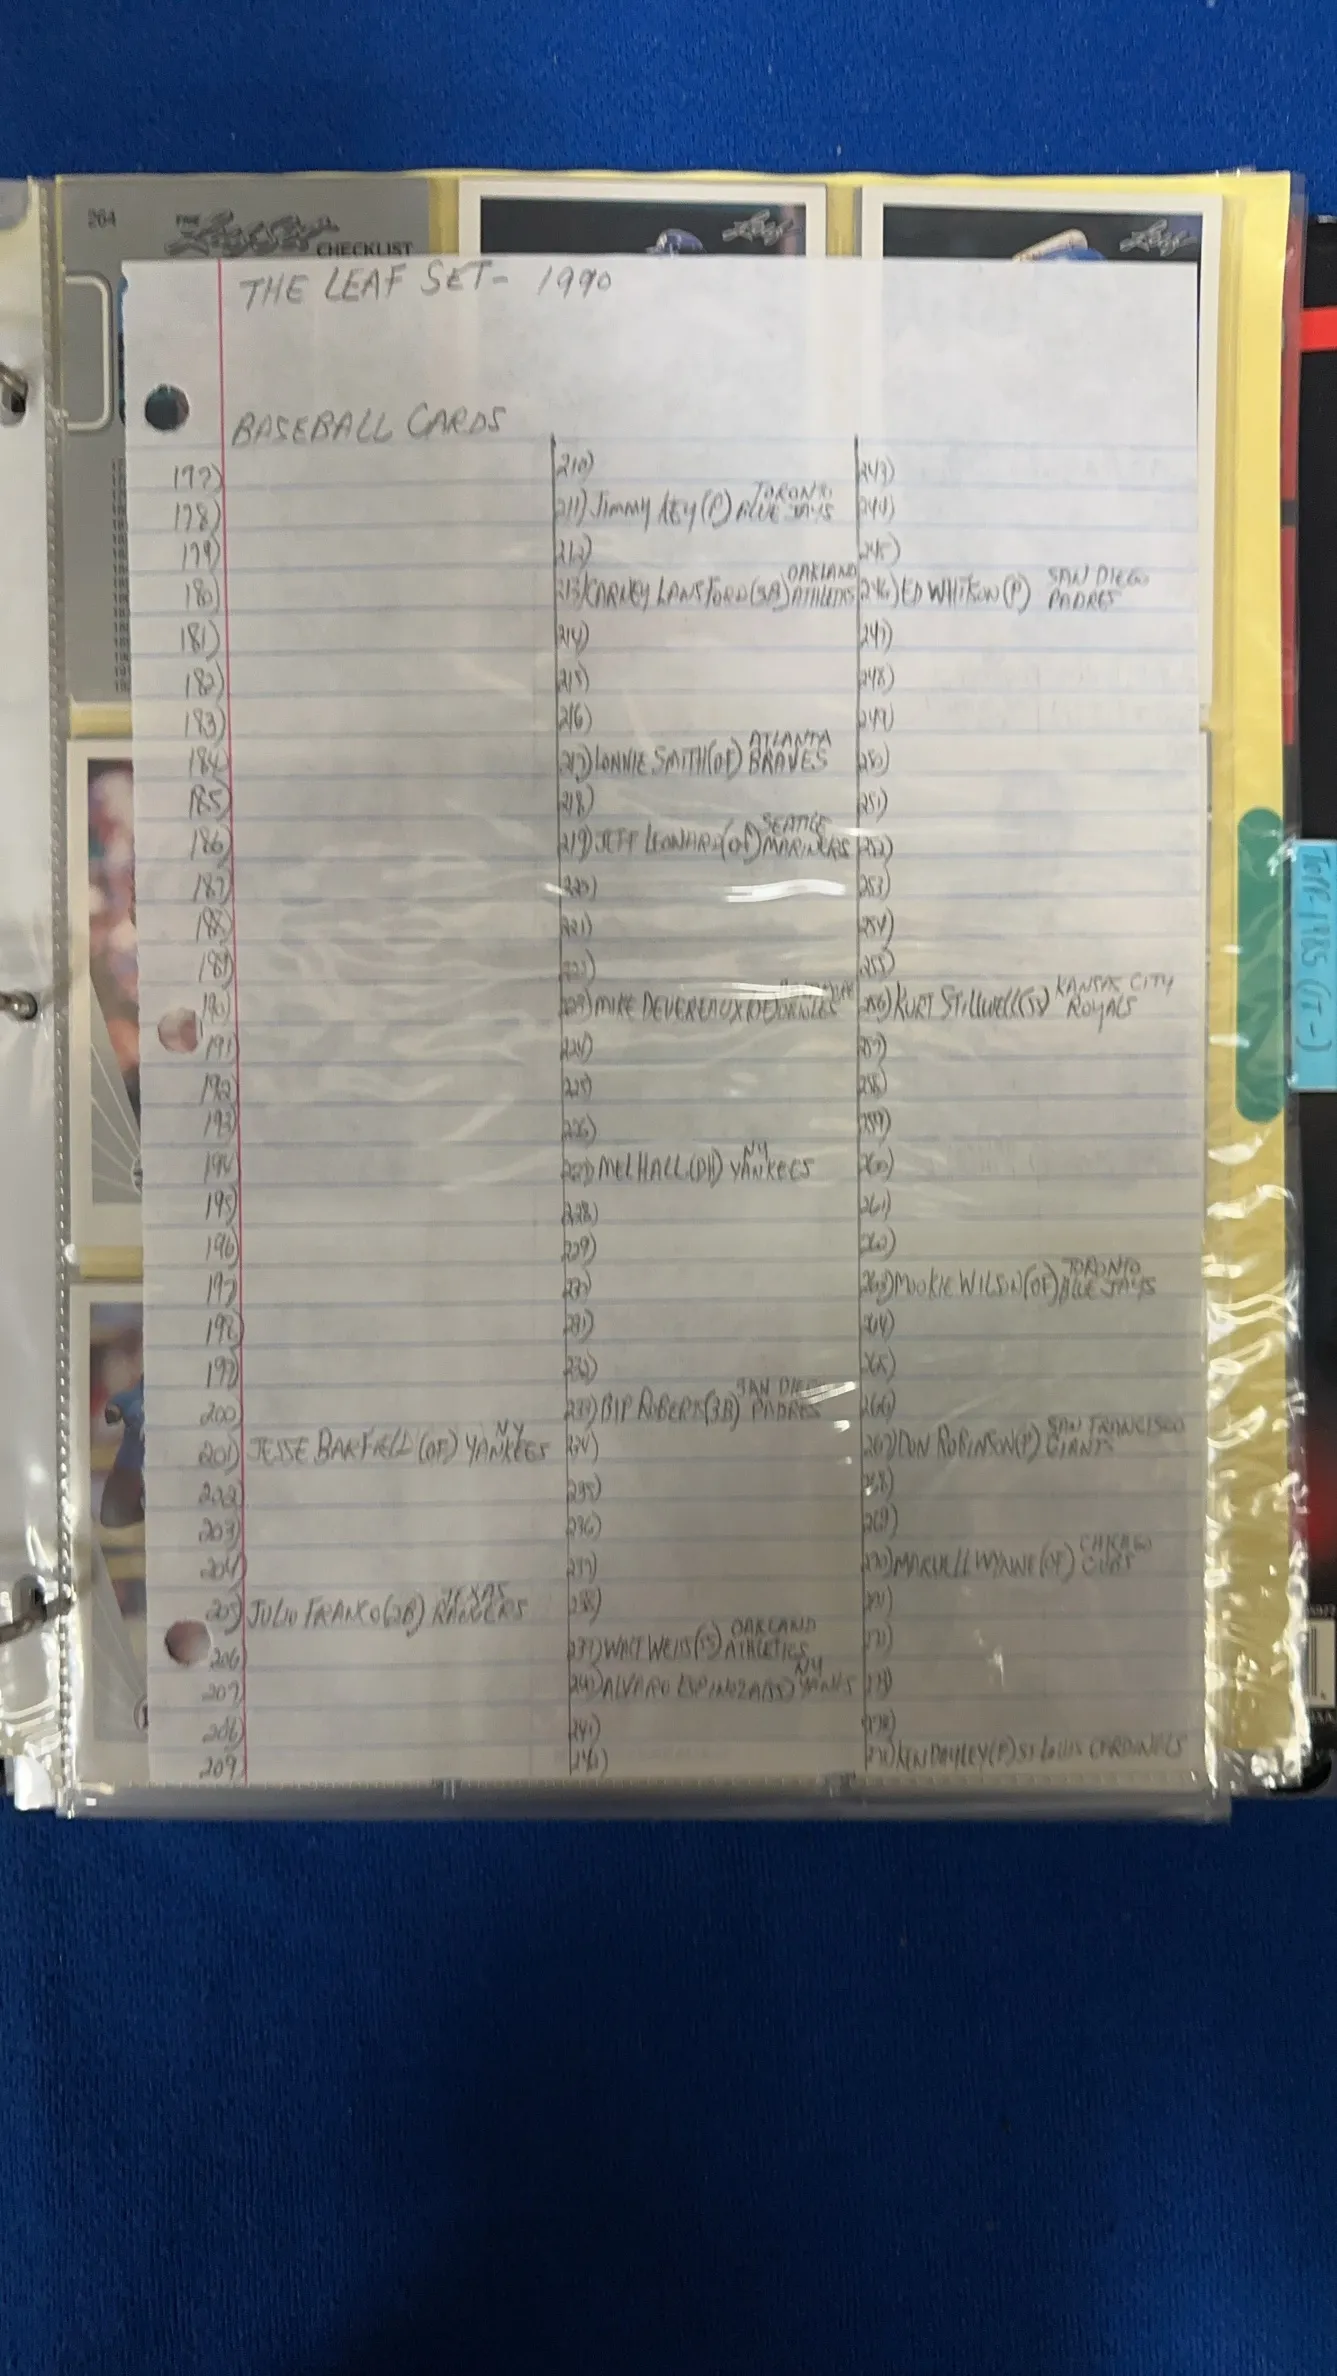 264
THE
Leaf Set
CHECKLIST
Leaf
Leaf
THE LEAF SET- 1990
BASEBALL CARDS
177)
178)
179)
180)
181)
182)
183)
184)
185)
186)
187)
188)
189)
190)
191)
192)
193)
194)
195)
196)
197)
198)
199)
200)
201) JESSE BARFIELD (OF) NY YANKEES
202)
203)
204)
205) JULIO FRANCO (2B) TEXAS RANGERS
206)
207)
208)
209)
210)
211) JIMMY KEY (P) TORONTO BLUE JAYS
212)
213) CARNEY LANSFORD (3B) OAKLAND ATHLETICS
214)
215)
216)
217) LONNIE SMITH (OF) ATLANTA BRAVES
218)
219) JEFF LEONARD (OF) SEATTLE MARINERS
220)
221)
222)
223) MIKE DEVEREAUX (OF) ORIOLES
224)
225)
226)
227) MEL HALL (DH) NY YANKEES
228)
229)
230)
231)
232)
233) BIP ROBERTS (3B) SAN DIEGO PADRES
234)
235)
236)
237)
238)
239) WALT WEISS (SS) OAKLAND ATHLETICS
240) ALVARO ESPINOZA (SS) NY YANKS
241)
242)
243)
244)
245)
246) ED WHITSON (P) SAN DIEGO PADRES
247)
248)
249)
250)
251)
252)
253)
254)
255)
256) KURT STILLWELL (SS) KANSAS CITY ROYALS
257)
258)
259)
260)
261)
262)
263) MOOKIE WILSON (OF) TORONTO BLUE JAYS
264)
265)
266)
267) DON ROBINSON (P) SAN FRANCISCO GIANTS
268)
269)
270) MARVELL WYNNE (OF) CHICAGO CUBS
271)
272)
273)
274)
275) KEN DAYLEY (P) ST LOUIS CARDINELS